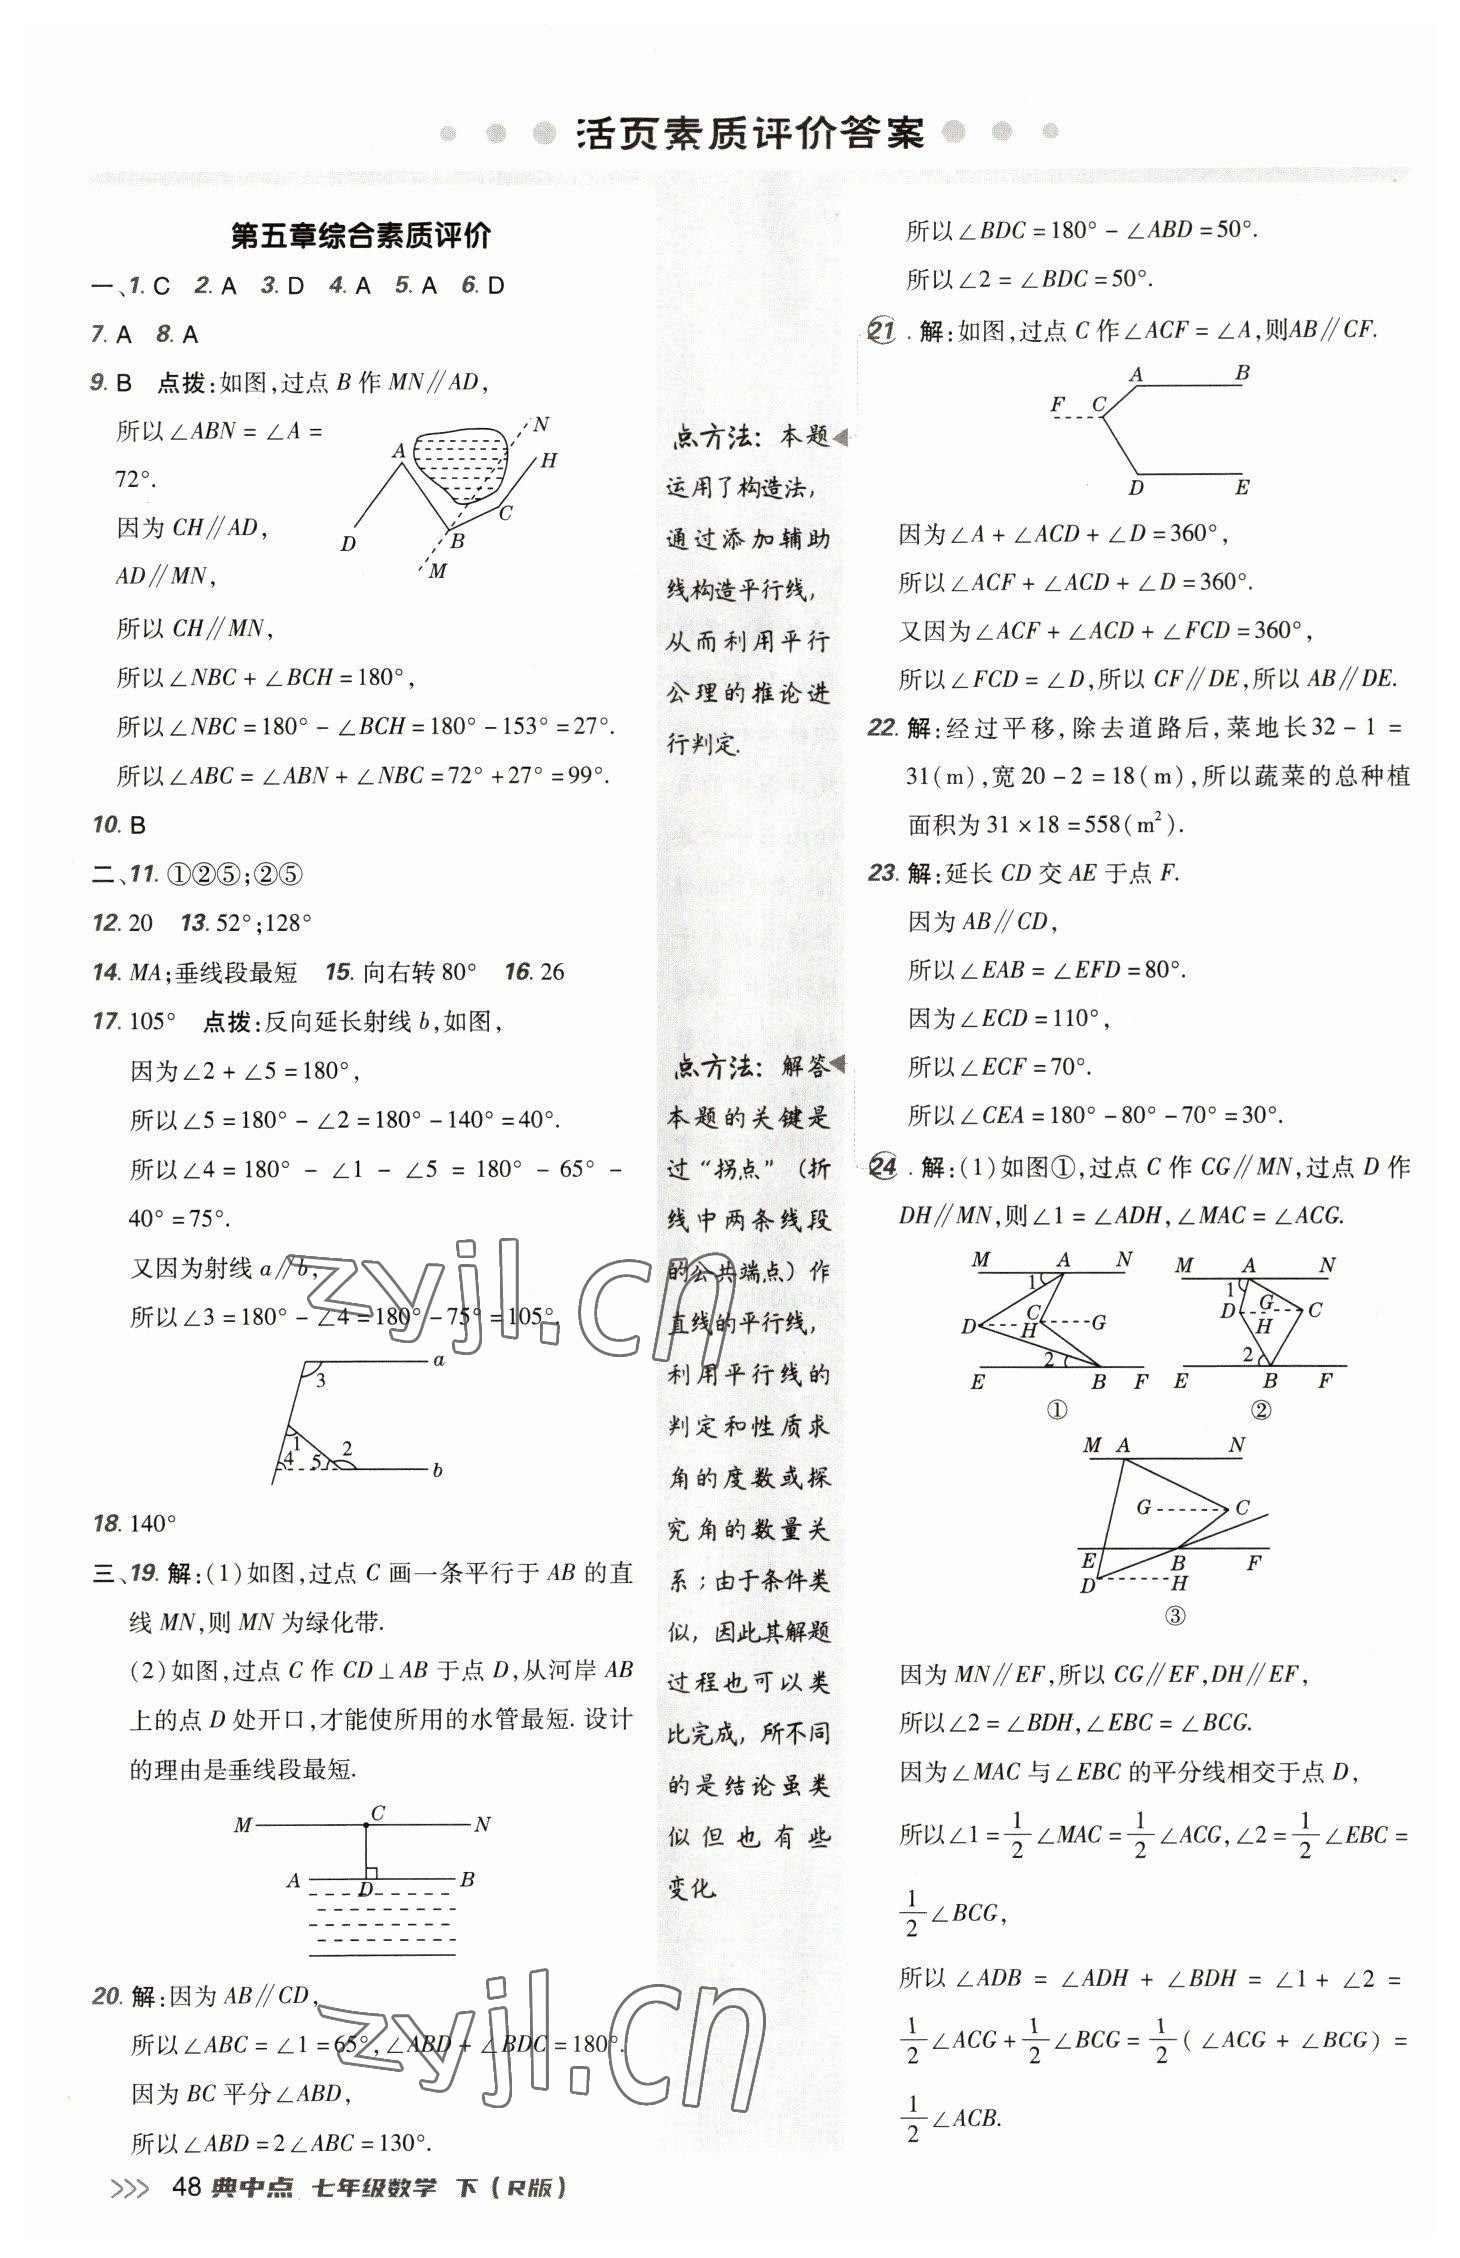 活页素质评价答案
第五章综合素质评价
一、1. C 2. A 3. D 4. A 5. A 6. D
7. A 8. A
9. B 点拨:如图,过点 B 作 MN∥AD,
所以∠ABN = ∠A =
72°.
因为 CH∥AD,
AD∥MN,
A N H C B D M
所以 CH∥MN,
所以∠NBC + ∠BCH = 180°,
所以∠NBC = 180° - ∠BCH = 180° - 153° = 27°.
所以∠ABC = ∠ABN + ∠NBC = 72° + 27° = 99°.
10. B
二、11. ①②⑤;②⑤
12. 20 13. 52°;128°
14. MA;垂线段最短 15. 向右转 80° 16. 26
17. 105° 点拨:反向延长射线 b,如图,
因为∠2 + ∠5 = 180°,
所以∠5 = 180° - ∠2 = 180° - 140° = 40°.
所以∠4 = 180° - ∠1 - ∠5 = 180° - 65° -
40° = 75°.
又因为射线 a∥b,
所以∠3 = 180° - ∠4 = 180° - 75° = 105°.
a 3 1 2 4 5 b
18. 140°
三、19. 解:(1)如图,过点 C 画一条平行于 AB 的直
线 MN,则 MN 为绿化带.
(2)如图,过点 C 作 CD⊥AB 于点 D,从河岸 AB
上的点 D 处开口,才能使所用的水管最短. 设计
的理由是垂线段最短.
M C N
A D B
20. 解:因为 AB∥CD,
所以∠ABC = ∠1 = 65°,∠ABD + ∠BDC = 180°.
因为 BC 平分∠ABD,
所以∠ABD = 2∠ABC = 130°.
点方法：本题
运用了构造法，
通过添加辅助
线构造平行线，
从而利用平行
公理的推论进
行判定.
点方法：解答
本题的关键是
过“拐点”（折
线中两条线段
的公共端点）作
直线的平行线，
利用平行线的
判定和性质求
角的度数或探
究角的数量关
系；由于条件类
似，因此其解题
过程也可以类
比完成，所不同
的是结论虽类
似但也有些
变化.
所以∠BDC = 180° - ∠ABD = 50°.
所以∠2 = ∠BDC = 50°.
21. 解:如图,过点 C 作∠ACF = ∠A,则AB∥CF.
A B
F C
D E
因为∠A + ∠ACD + ∠D = 360°,
所以∠ACF + ∠ACD + ∠D = 360°.
又因为∠ACF + ∠ACD + ∠FCD = 360°,
所以∠FCD = ∠D,所以 CF∥DE,所以 AB∥DE.
22. 解:经过平移,除去道路后,菜地长32 - 1 =
31(m),宽 20 - 2 = 18(m),所以蔬菜的总种植
面积为 31 × 18 = 558(m²).
23. 解:延长 CD 交 AE 于点 F.
因为 AB∥CD,
所以∠EAB = ∠EFD = 80°.
因为∠ECD = 110°,
所以∠ECF = 70°.
所以∠CEA = 180° - 80° - 70° = 30°.
24. 解:(1)如图①,过点 C 作 CG∥MN,过点 D 作
DH∥MN,则∠1 = ∠ADH,∠MAC = ∠ACG.
M A N
1
C
D H G
2
E B F
①
M A N
1
D G C
H
2
E B F
②
M A N
G C
E B F
D H
③
因为 MN∥EF,所以 CG∥EF,DH∥EF,
所以∠2 = ∠BDH,∠EBC = ∠BCG.
因为∠MAC 与∠EBC 的平分线相交于点 D,
所以∠1 = 1/2 ∠MAC = 1/2 ∠ACG,∠2 = 1/2 ∠EBC =
1/2 ∠BCG,
所以∠ADB = ∠ADH + ∠BDH = ∠1 + ∠2 =
1/2 ∠ACG + 1/2 ∠BCG = 1/2 (∠ACG + ∠BCG) =
1/2 ∠ACB.
48 典中点 七年级数学 下（R版）
zyjl.cn
zyjl.cn